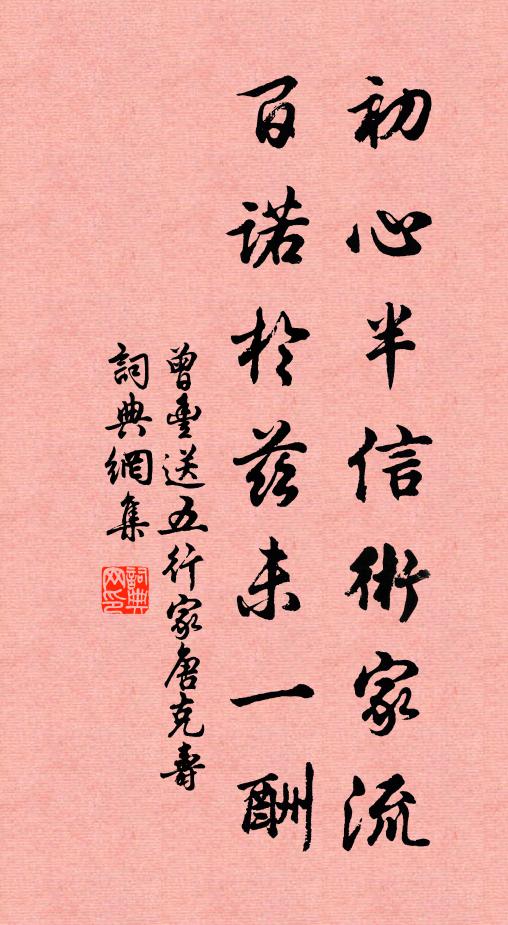 初心半信術家流
百諾於茲未一酬
曾豐送五行家唐克壽
詞典網集
詞典网印